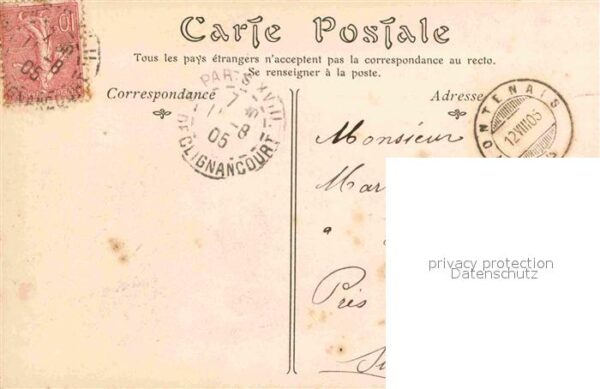 Carte Postale
Tous les pays étrangers n'acceptent pas la correspondance au recto.
Se renseigner à la poste.
Correspondance
Adresse
10
05
PARIS XVIII
7
11 -8
05
CLIGNANCOURT
12 VIII 05
Monsieur
Mar
à
Près
privacy protection
Datenschutz